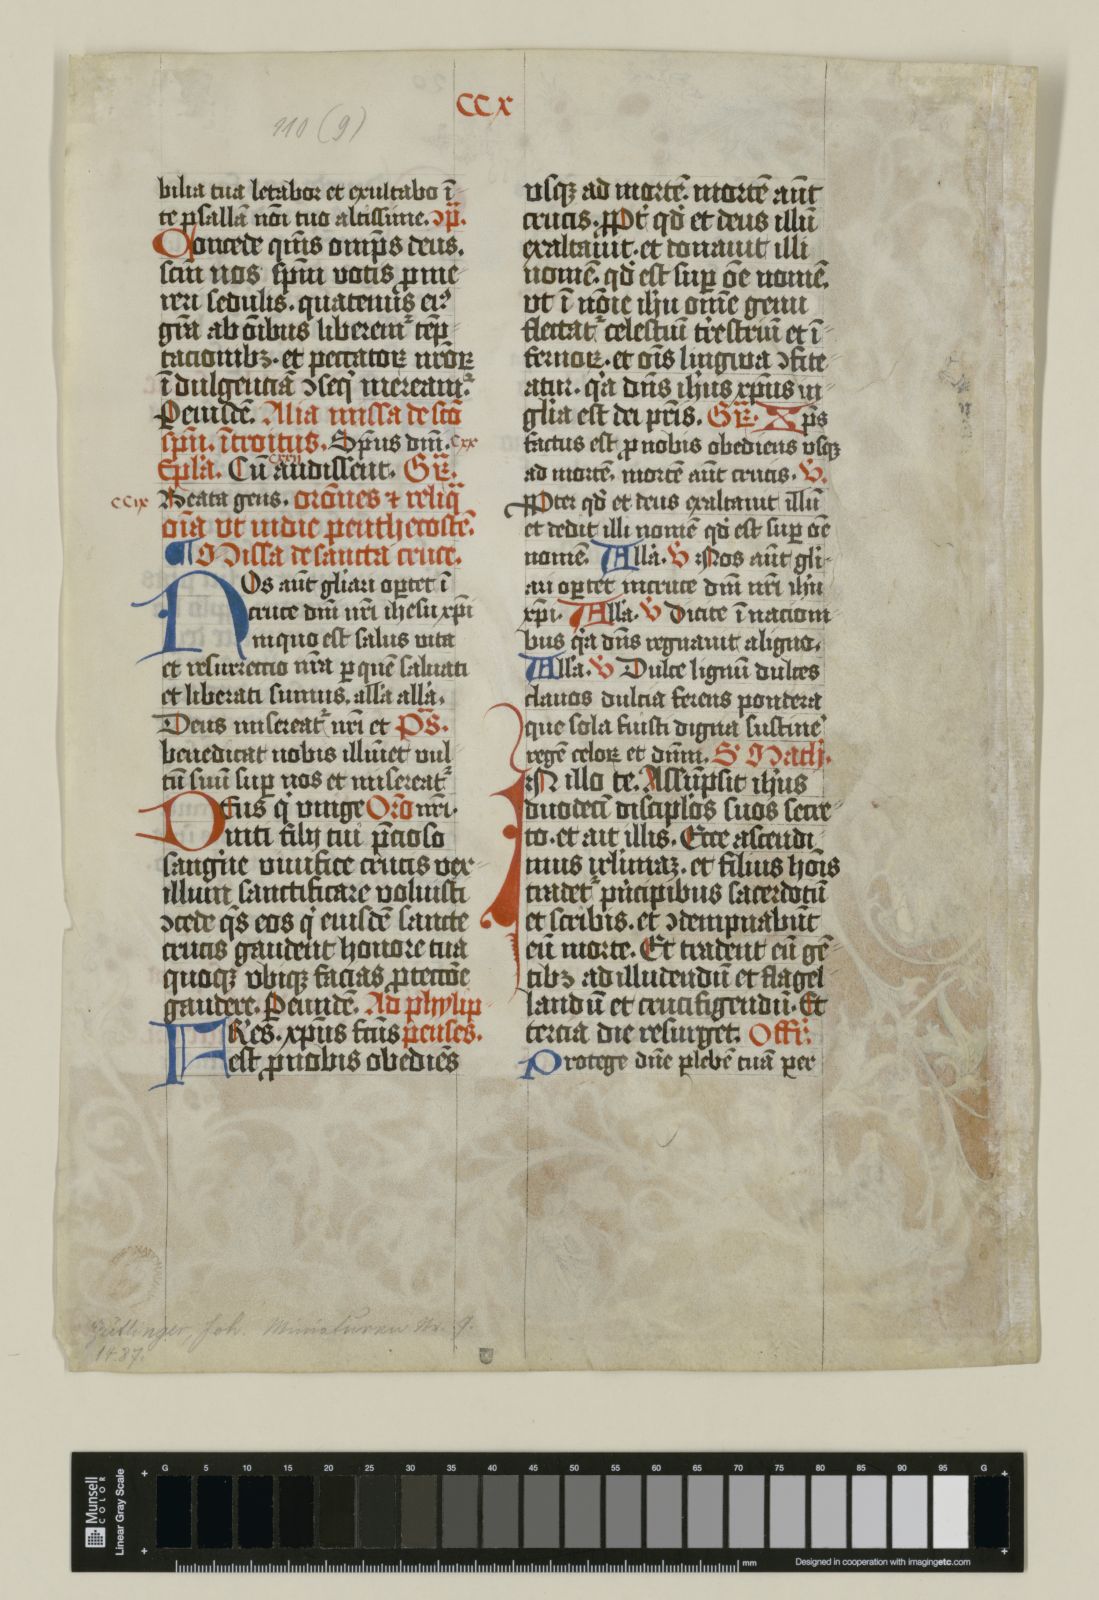 CCx
110 (9)
bilia tua letabor et exultabo ī
te ꝑsallā nōi tuo altissime. ↄp̄.
Concede quīs omp̄s deus.
scūi nos sp̄m votis ꝓme
reri sedulis. quatenus eiꝰ
grā ab oībus liberemᷣ tēp
tacionibꝫ. et peccatorꝝ nrōꝝ
īdulgenciā ↄseqᷣ mereamᷣ.
Peeundē. Alia missa de sc̄o
sp̄u. ītroitus. Spūs dn̄i. cxx
Epl̄a. Cū audissent. Gr̄.
ccix Beata gens. orōnes ⁊ reliq̄
oīa vt in die penthecostē.
¶ Missa de sancta cruce.
NOs aūt gl̄iari oꝑtet ī
cruce dn̄i nr̄i ihesu xp̄i
in quo est salus vita
et resurrectio nr̄a ꝑ quē saluati
et liberati sumus. all̄a all̄a.
Deus misereatᷣ nr̄i et P̄s.
benedicat nobis illuīet vul
tū suū suꝑ nos et misereatᷣ
DEus qͥ vnige Oro nr̄i.
niti filij tui p̄cioso
sangͥne viuifice crucis vex
illum sanctificare voluisti
ↄcede q̄s eos qͥ eiusdē sancte
crucis gaudent honore tua
quoqꝫ vbiqꝫ facias ꝓtectōe
gaudere. Peeundē. Ad phylip
FRēs. xp̄us fcūs penses.
est ꝓ nobis obediēs
vsqꝫ ad mortē. mortē aūt
crucis. Ꝓpt̄ qd̄ et deus illū
exaltauit. et donauit illi
nomē. qd̄ est suꝑ oē nomē.
vt ī nōie ih̄u omē genu
flectatᷣ celestiū t̄restriū et ī
fernoꝝ. et oīs lingwa ↄfite
atur. qͥa dn̄s ih̄us xp̄us in
gl̄ia est dei pr̄is. Gr̄. Xp̄s
factus est ꝓ nobis obediens vsqꝫ
ad mortē. mortē aūt crucis. V̄.
Ꝓpter qd̄ et deus exaltauit illū
et dedit illi nomē qd̄ est suꝑ oē
nomē. All̄a. V̄ Nos aūt gl̄i
ari oꝑtet in cruce dn̄i nr̄i ih̄u
xp̄i. All̄a. V̄ Dicite ī nacioni
bus qͥa dn̄s regnauit a ligno.
All̄a. V̄ Dulce lignū dulces
clauos dulcia ferens pondera
que sola fuisti digna sustine᷒
regē celoꝝ et dn̄m. S. Math̄.
IN illo te. Assūpsit ih̄us
duodecī discip̄los suos secre
to. et ait illis. Ecce ascendi
mus ierl̄imaꝫ. et filius hoīs
tradetᷣ pͥncipibus sacerdotū
et scribis. et ↄdempnabūt
eū morte. Et tradent eū gē
tibꝫ ad illudendū et flagel
landū et crucifigendū. Et
tercia die resurget. Off̄i.
Protege dn̄e plebē tuā ꝑ
Zittinger, Joh. Miniaturen Nr. 9.
1487.
Munsell
COLOR
Linear Gray Scale
G 5 10 15 20 25 30 35 40 45 50 55 60 65 70 75 80 85 90 95 G
mm
Designed in cooperation with imagingetc.com